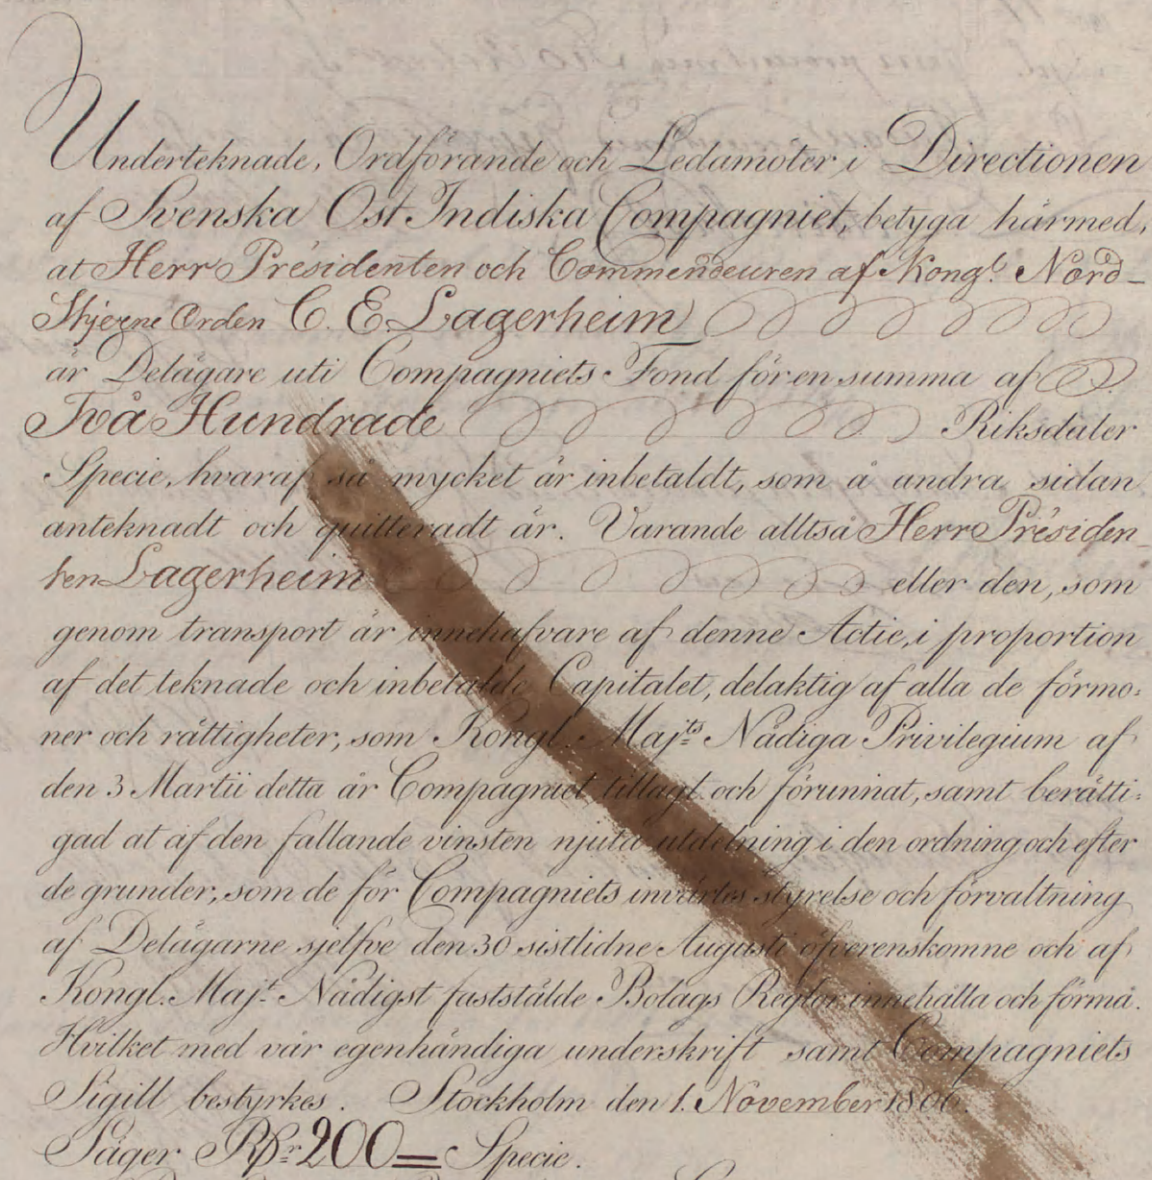 Underteknade, Ordförande och Ledamöter i Directionen
af Svenska Ost Indiska Compagniet, betyga härmed,
at Herr Presidenten och Commendeuren af Kongl. Nord-
Stjerne Orden C. E. Lagerheim
är Delägare uti Compagniets Fond för en summa af
Två Hundrade Riksdaler
Specie, hvaraf så mycket är inbetaldt, som å andra sidan
anteknadt och quitteradt är. Varande alltså Herr Presiden
ten Lagerheim eller den, som
genom transport är innehafvare af denne Actie, i proportion
af det teknade och inbetalde Capitalet, delaktig af alla de förmo:
ner och rättigheter, som Kongl. Majts Nådiga Privilegium af
den 3 Martii detta år Compagniet tillagt och förunnat, samt berätti:
gad at af den fallande vinsten njuta utdelning i den ordning och efter
de grunder, som de för Compagniets invärtes styrelse och förvaltning
af Delägarne sjelfve den 30 sistlidne Augusti öfverenskomne och af
Kongl. Majt. Nådigst fastställde Bolags Reglor innehålla och förmå.
Hvilket med vår egenhändiga underskrift samt Compagniets
Sigill bestyrkes. Stockholm den 1. November 1806.
Säger Rdr 200 = Specie.